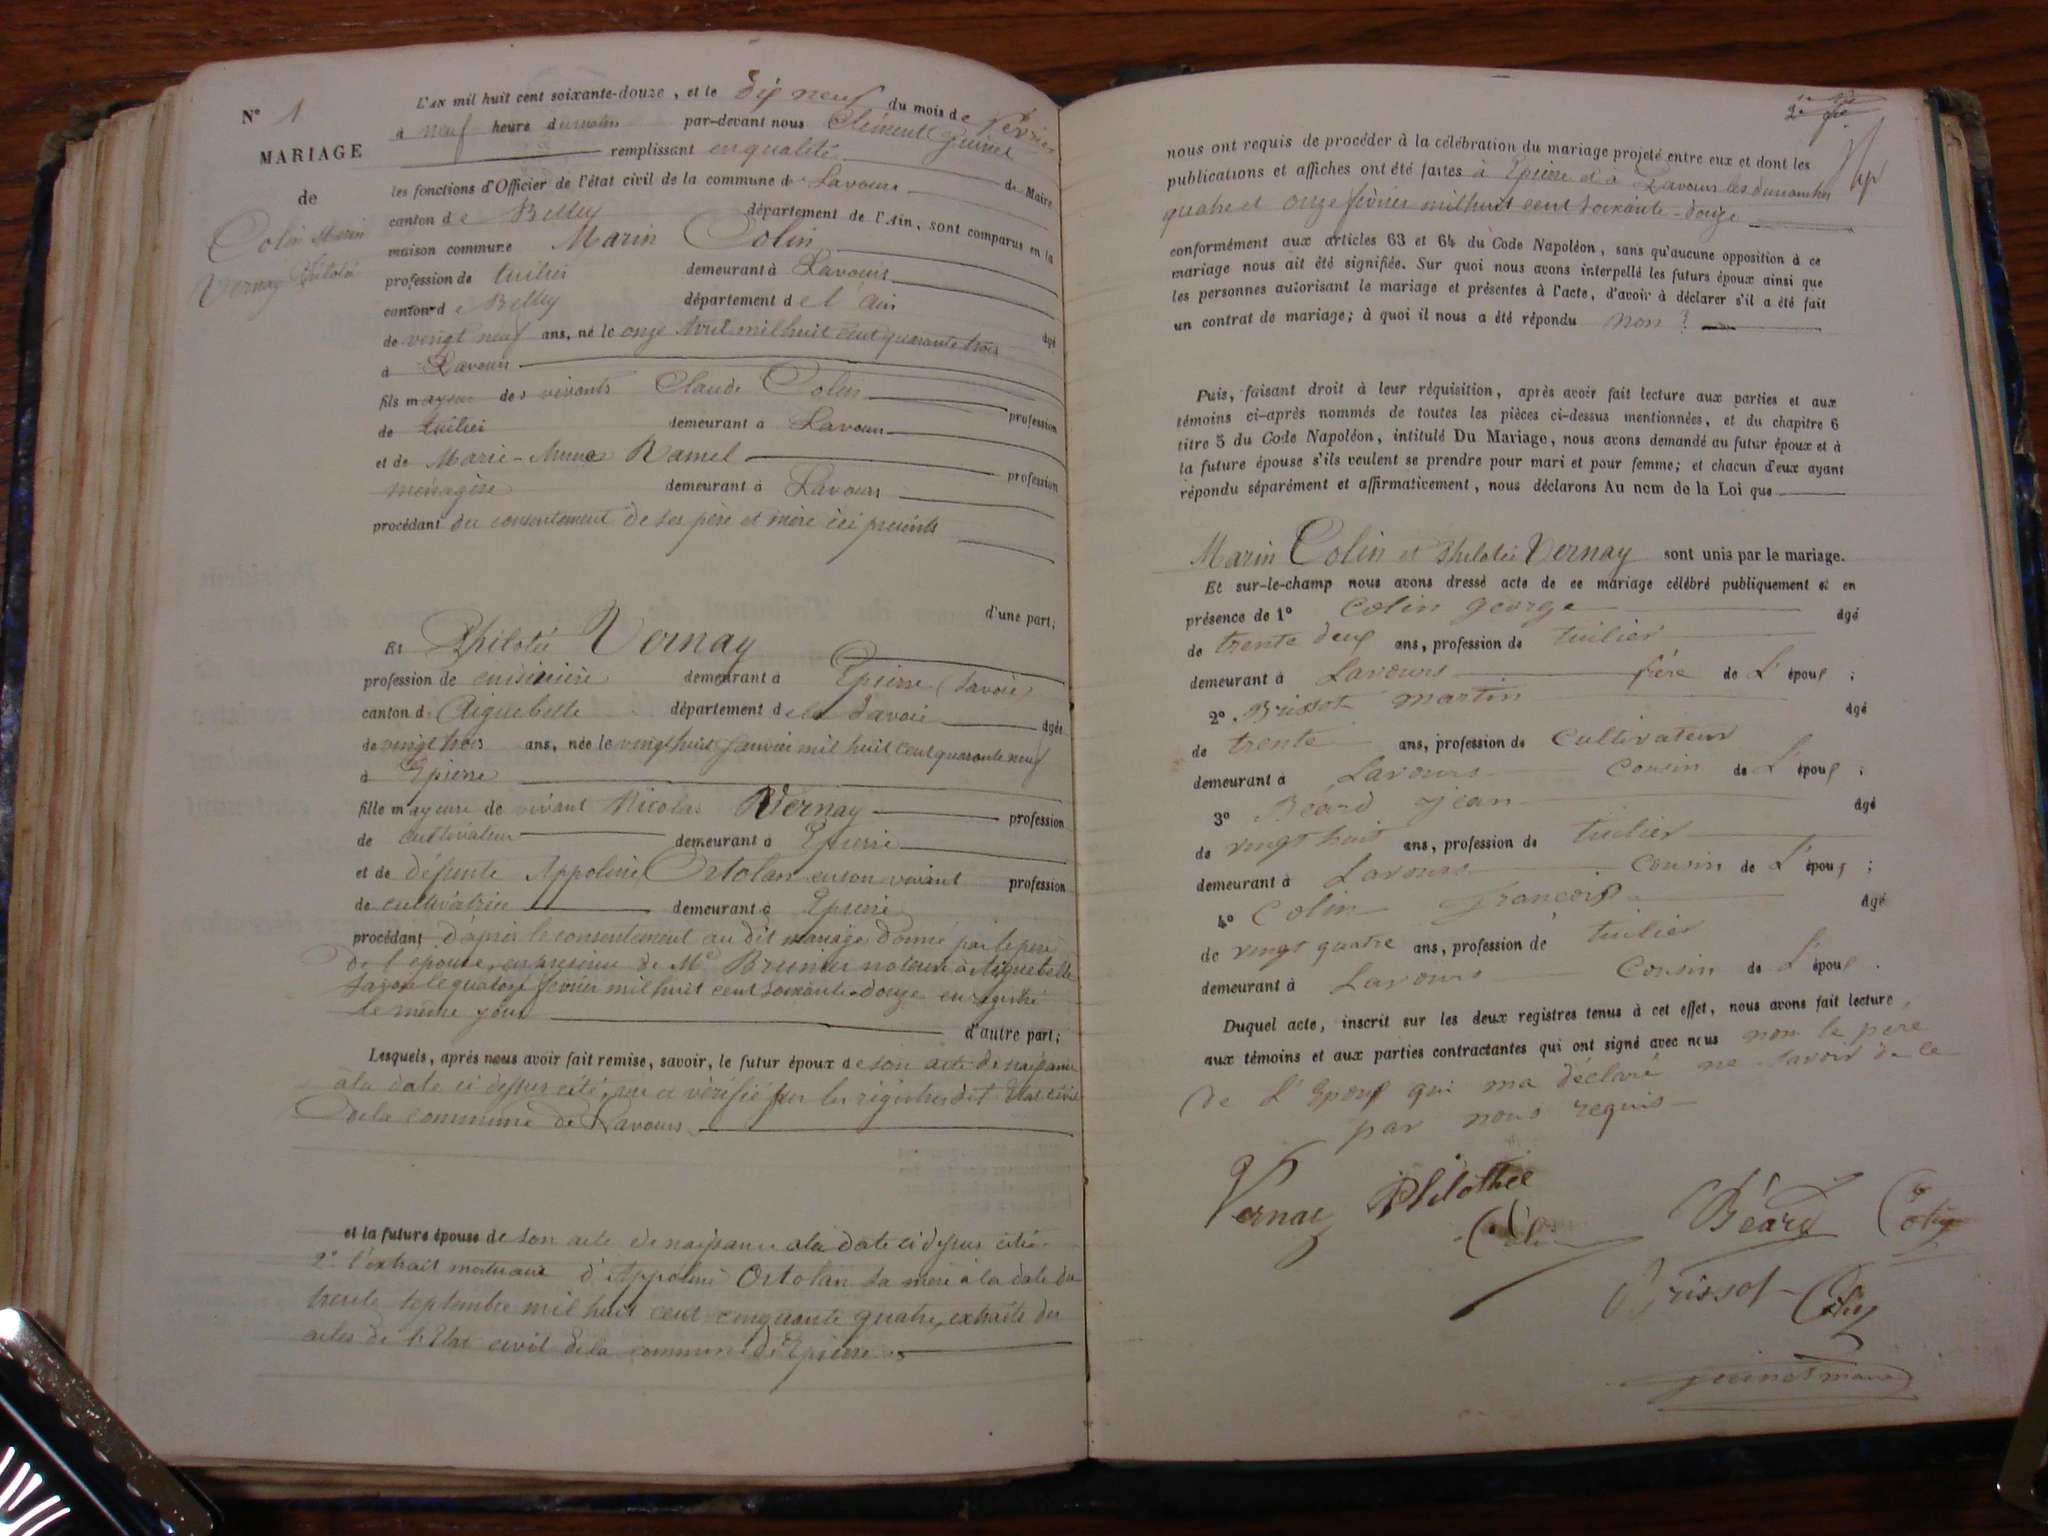 N° 1
MARIAGE
de
Colin Marin
Vernay Philotée
L'AN mil huit cent soixante-douze, et le dix neuf du mois de Février
à neuf heure du matin par-devant nous Clément Guinet
remplissant en qualité de Maire
les fonctions d'Officier de l'état civil de la commune de Lavours
canton de Belley département de l'Ain, sont comparus en la
maison commune Marin Colin
profession de tuilier demeurant à Lavours
canton de Belley département de l'Ain
âgé de vingt neuf ans, né le onze Avril mil huit cent quarante trois
à Lavours
fils mayeur des vivants Claude Colin profession
de tuilier demeurant à Lavours
et de Marie-Ramel profession
ménagère demeurant à Lavours
procédant du consentement de ses père et mère ici présents
d'une part;
Et Philotée Vernay
profession de cuisinière demeurant à Epierre (Savoie)
canton d'Aiguebelle département de la Savoie âgée
de vingt trois ans, née le vingt huit Janvier mil huit cent quarante neuf
à Epierre
fille mayeure de vivant Nicolas Vernay profession
de cultivateur demeurant à Epierre
et de défunte Appolinie Ortolan en son vivant profession
de cultivatrice demeurant à Epierre
procédant d'après le consentement au dit mariage donné par le père
de l'épouse, en présence de Me Brunier notaire à Aiguebelle
Savoie le quatorze février mil huit cent soixante-douze enregistré
le même jour d'autre part;
Lesquels, après nous avoir fait remise, savoir, le futur époux de son acte de naissance
à la date ci dessus cité, vu et vérifié sur les régistres de l'Etat civil
de la commune de Lavours
et la future épouse de son acte de naissance à la date ci dessus citée
2° l'extrait mortuaire d'Appolinie Ortolan sa mère à la date du
trente septembre mil huit cent cinquante quatre, extraits des
actes de l'Etat civil de la commune d'Epierre
nous ont requis de procéder à la célébration du mariage projeté entre eux et dont les
publications et affiches ont été faites à Epierre et à Lavours les dimanches
quatre et onze février mil huit cent soixante-douze
conformément aux articles 63 et 64 du Code Napoléon, sans qu'aucune opposition à ce
mariage nous ait été signifiée. Sur quoi nous avons interpellé les futurs époux ainsi que
les personnes autorisant le mariage et présentes à l'acte, d'avoir à déclarer s'il a été fait
un contrat de mariage; à quoi il nous a été répondu non
Puis, faisant droit à leur réquisition, après avoir fait lecture aux parties et aux
témoins ci-après nommés de toutes les pièces ci-dessus mentionnées, et du chapitre 6
titre 5 du Code Napoléon, intitulé Du Mariage, nous avons demandé au futur époux et à
la future épouse s'ils veulent se prendre pour mari et pour femme; et chacun d'eux ayant
répondu séparément et affirmativement, nous déclarons Au nom de la Loi que
Marin Colin et Philotée Vernay sont unis par le mariage.
Et sur-le-champ nous avons dressé acte de ce mariage célébré publiquement et en
présence de 1° Colin george âgé
de trente deux ans, profession de tuilier
demeurant à Lavours frère de L'époux;
2° Brissot martin âgé
de trente ans, profession de Cultivateur
demeurant à Lavours Cousin de L'époux;
3° Béard jean âgé
de vingt huit ans, profession de tuilier
demeurant à Lavours Cousin de L'époux;
4° Colin françois âgé
de vingt quatre ans, profession de tuilier
demeurant à Lavours Cousin de L'époux.
Duquel acte, inscrit sur les deux registres tenus à cet effet, nous avons fait lecture
aux témoins et aux parties contractantes qui ont signé avec nous non le père
de L'Epoux qui ma déclaré ne savoir de ce
par nous requis
Vernay Philothée
Colin
Béard Colin
Brissot Colin
guinet maire